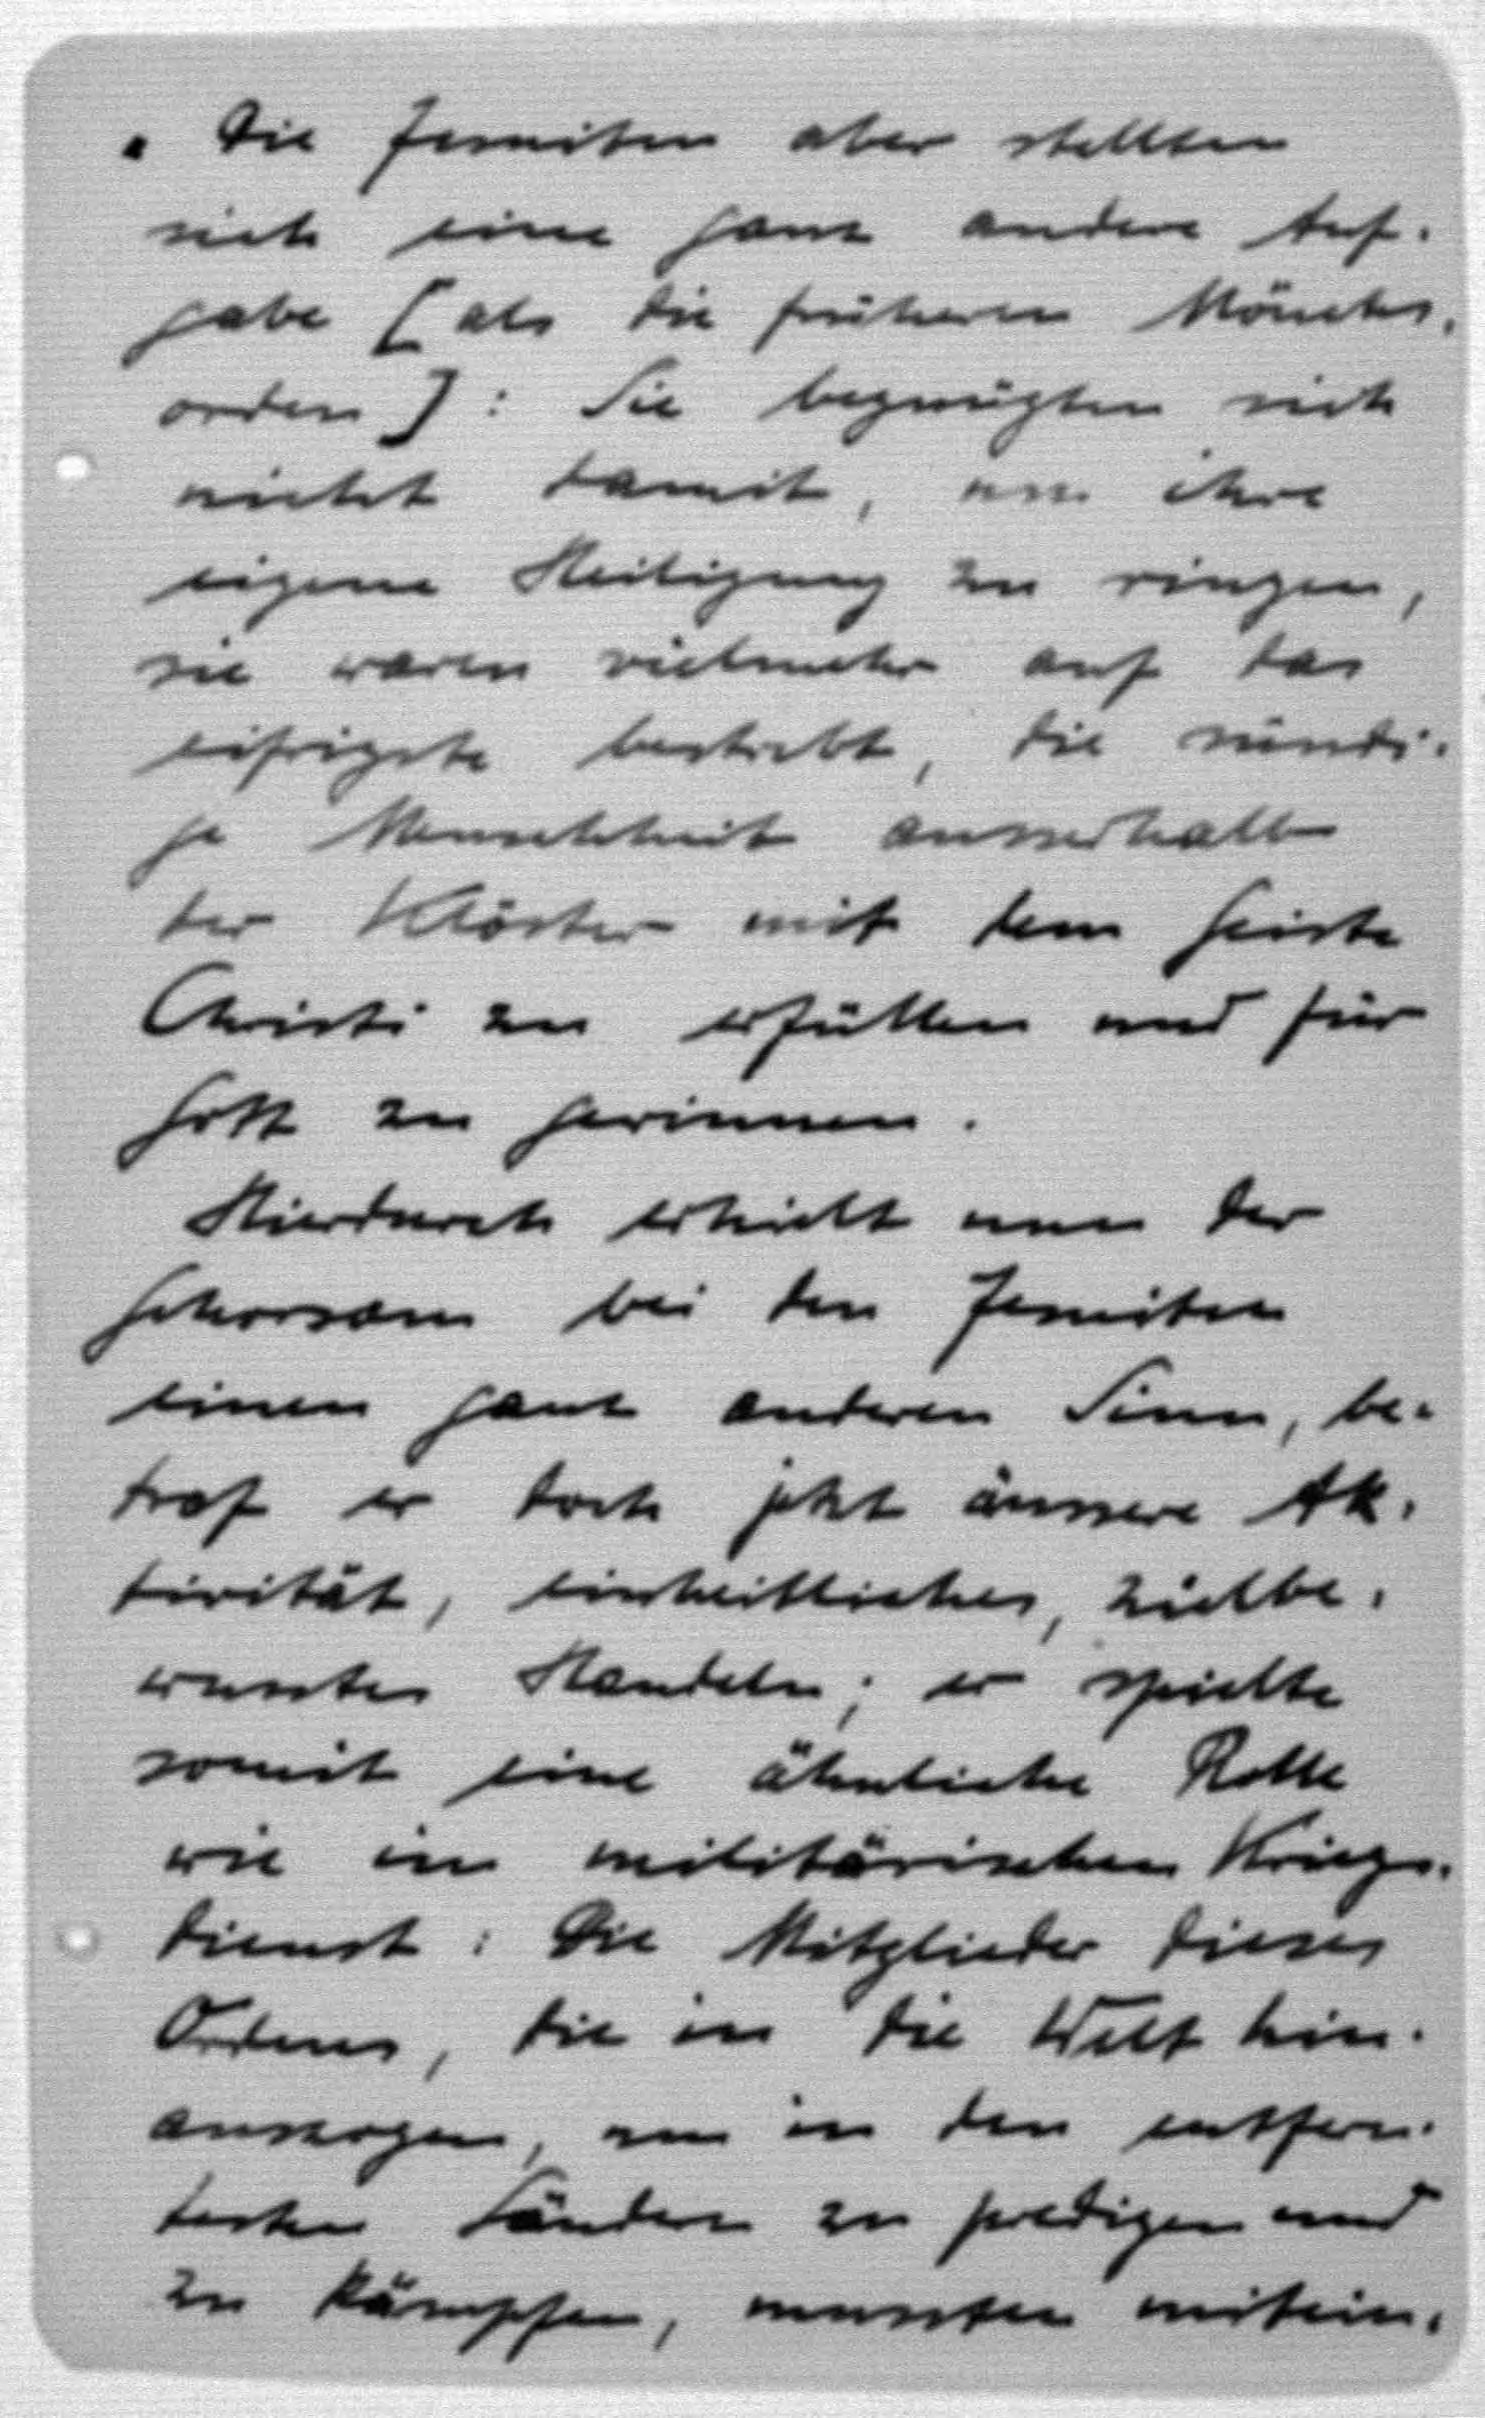 " Die Jesuiten aber stellten
sich eine ganz andere Auf-
gabe [als die früheren Mönchs-
orden]: Sie begnügten sich
nicht damit, um ihre
eigene Heiligung zu ringen,
sie waren vielmehr auf das
eifrigste bestrebt, die sündi-
ge Menschheit ausserhalb
der Klöster mit dem Geiste
Christi zu erfüllen und für
Gott zu gewinnen.
Hierdurch erhielt nun der
Gehorsam bei den Jesuiten
einen ganz anderen Sinn, be-
traf er doch jetzt äussere Ak-
tivität, einheitliches, zielbe-
wusstes Handeln; er spielte
somit eine ähnliche Rolle
wie im militärischen Kriegs-
dienst: Die Mitglieder dieses
Ordens, die in die Welt hin-
auszogen, um in den entfern-
testen Ländern zu predigen und
zu kämpfen, mussten mitein-